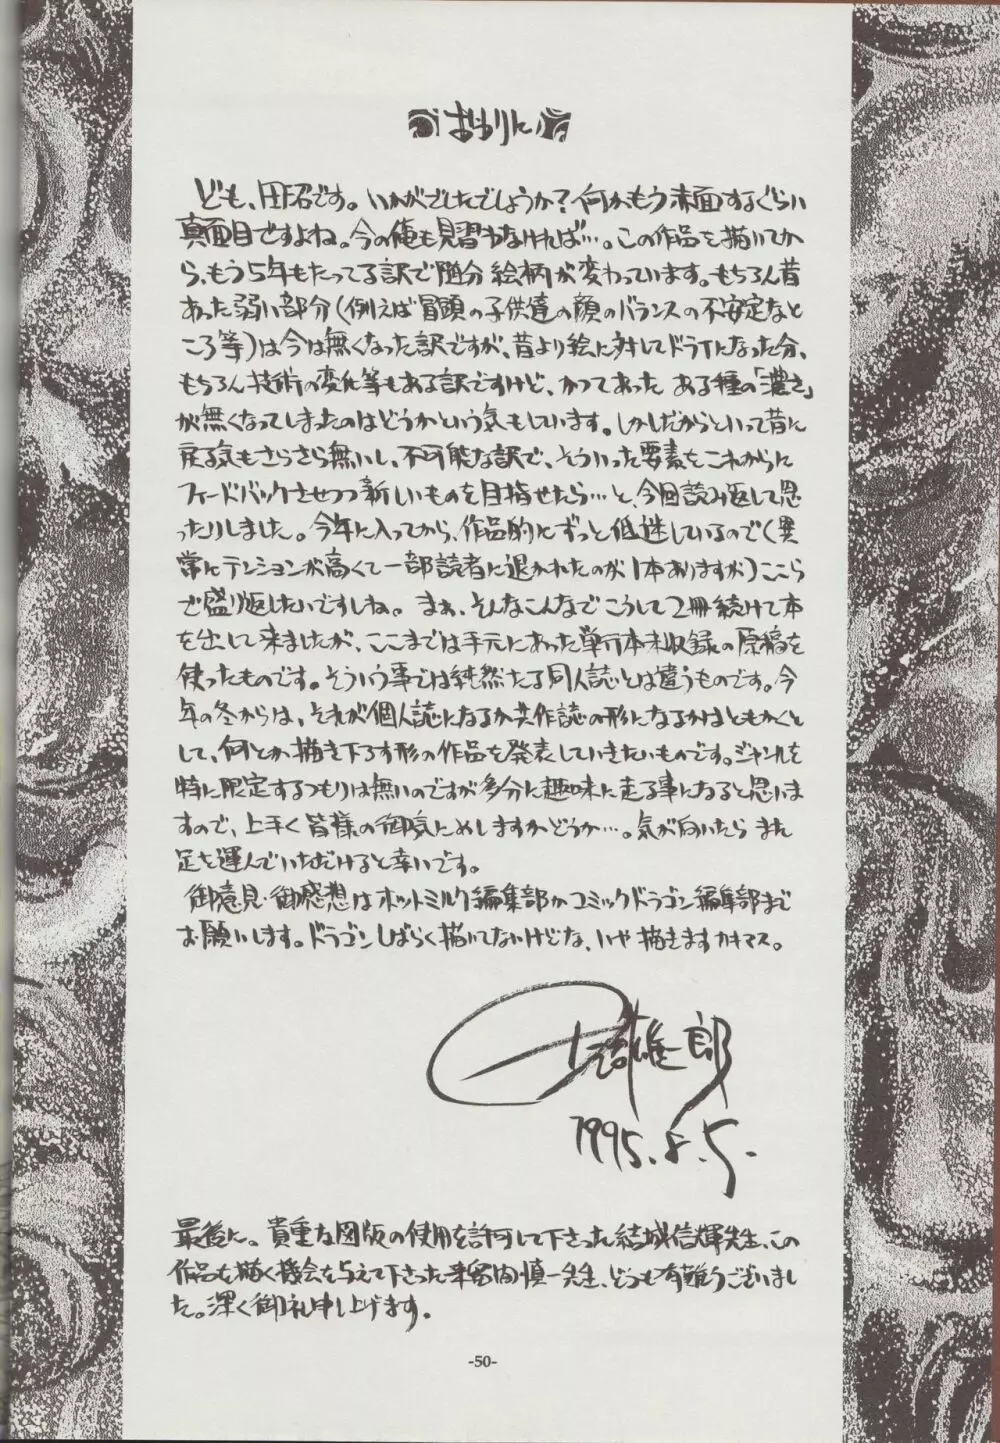 おわりに
ども、田沼です。いかがでしたでしょうか?何かもう赤面するぐらい
真面目ですよね。今の俺も見習わなければ…。この作品を描いてか
ら、もう5年もたってる訳で随分絵柄が変わっています。もちろん昔
あった弱い部分(例えば冒頭の子供達の顔のバランスの不安定なと
ころ等)は今は無くなった訳ですが、昔より絵に対してドライになった分、
もちろん技術の変化等もある訳ですけど、かつてあった ある種の「濃さ」
が無くなってしまったのはどうかという気もしています。しかしだからといって昔に
戻る気もさらさら無いし、不可能な訳で、そういった要素をこれからに
フィードバックさせつつ新しいものを目指せたら…と、今回読み返して思
ったりしました。今年に入ってから、作品的にずっと低迷しているので(異
常にテンションが高くて一部読者に退かれたのが1本ありますが)ここら
で盛り返したいですしね。まぁ、そんなこんなでこうして2冊続けて本
を出して来ましたが、ここまでは手元にあった単行本未収録の原稿を
使ったものです。そういう事では純然たる同人誌とは違うものです。今
年の冬からは、それが個人誌になるか共作誌の形になるかはともかくと
して、何とか描き下ろす形の作品を発表していきたいものです。ジャンルを
特に限定するつもりは無いのですが多分に趣味に走る事になると思いま
すので、上手く皆様の御気にめしますかどうか…。気が向いたらまた
足を運んでいただけると幸いです。
御意見・御感想はホットミルク編集部かコミックドラゴン編集部まで
お願いします。ドラゴンしばらく描いてないけどな、いや描きますカキマス。
雄一郎
1995.8.5.
最後に。貴重な図版の使用を許可して下さった結城信輝先生、この
作品を描く機会を与えて下さった 慎一先生、どうも有難うございまし
た。深く御礼申し上げます。
-50-